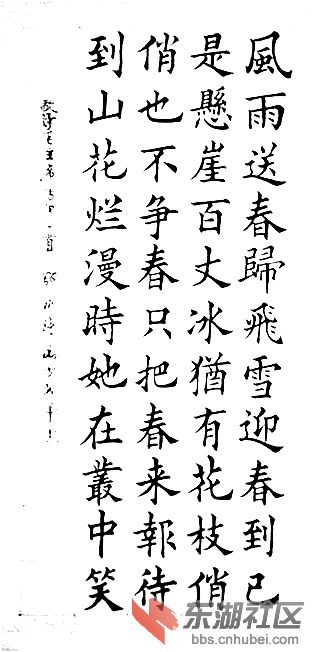 風雨送春歸飛雪迎春到已
是懸崖百丈冰猶有花枝俏
俏也不争春只把春来報待
到山花烂漫時她在叢中笑
毛主席 一首
东湖社区
bbs.cnhubei.com